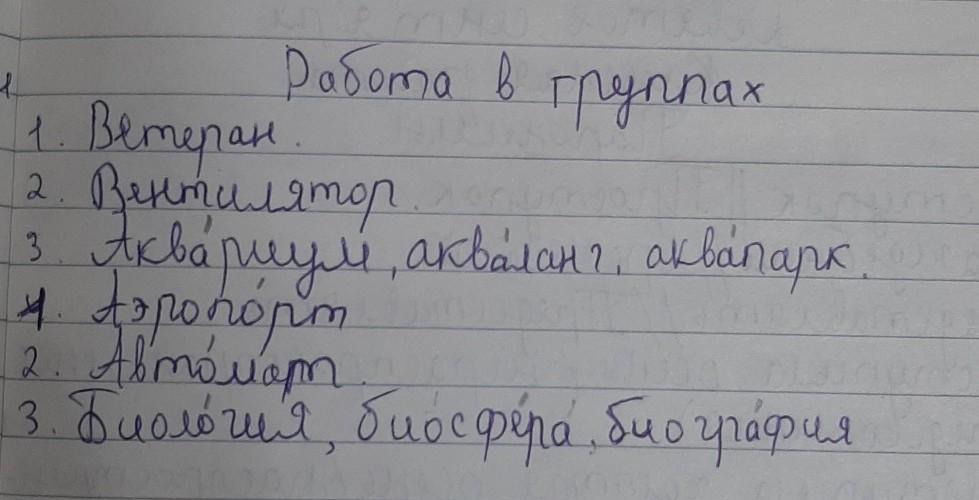 Работа в группах
1. Ветеран.
2. Вентилятор.
3. Аква́риум, аквала́нг, аквапа́рк.
4. Аэропо́рт
2. Автома́т.
3. Биоло́гия, биосфе́ра, биогра́фия